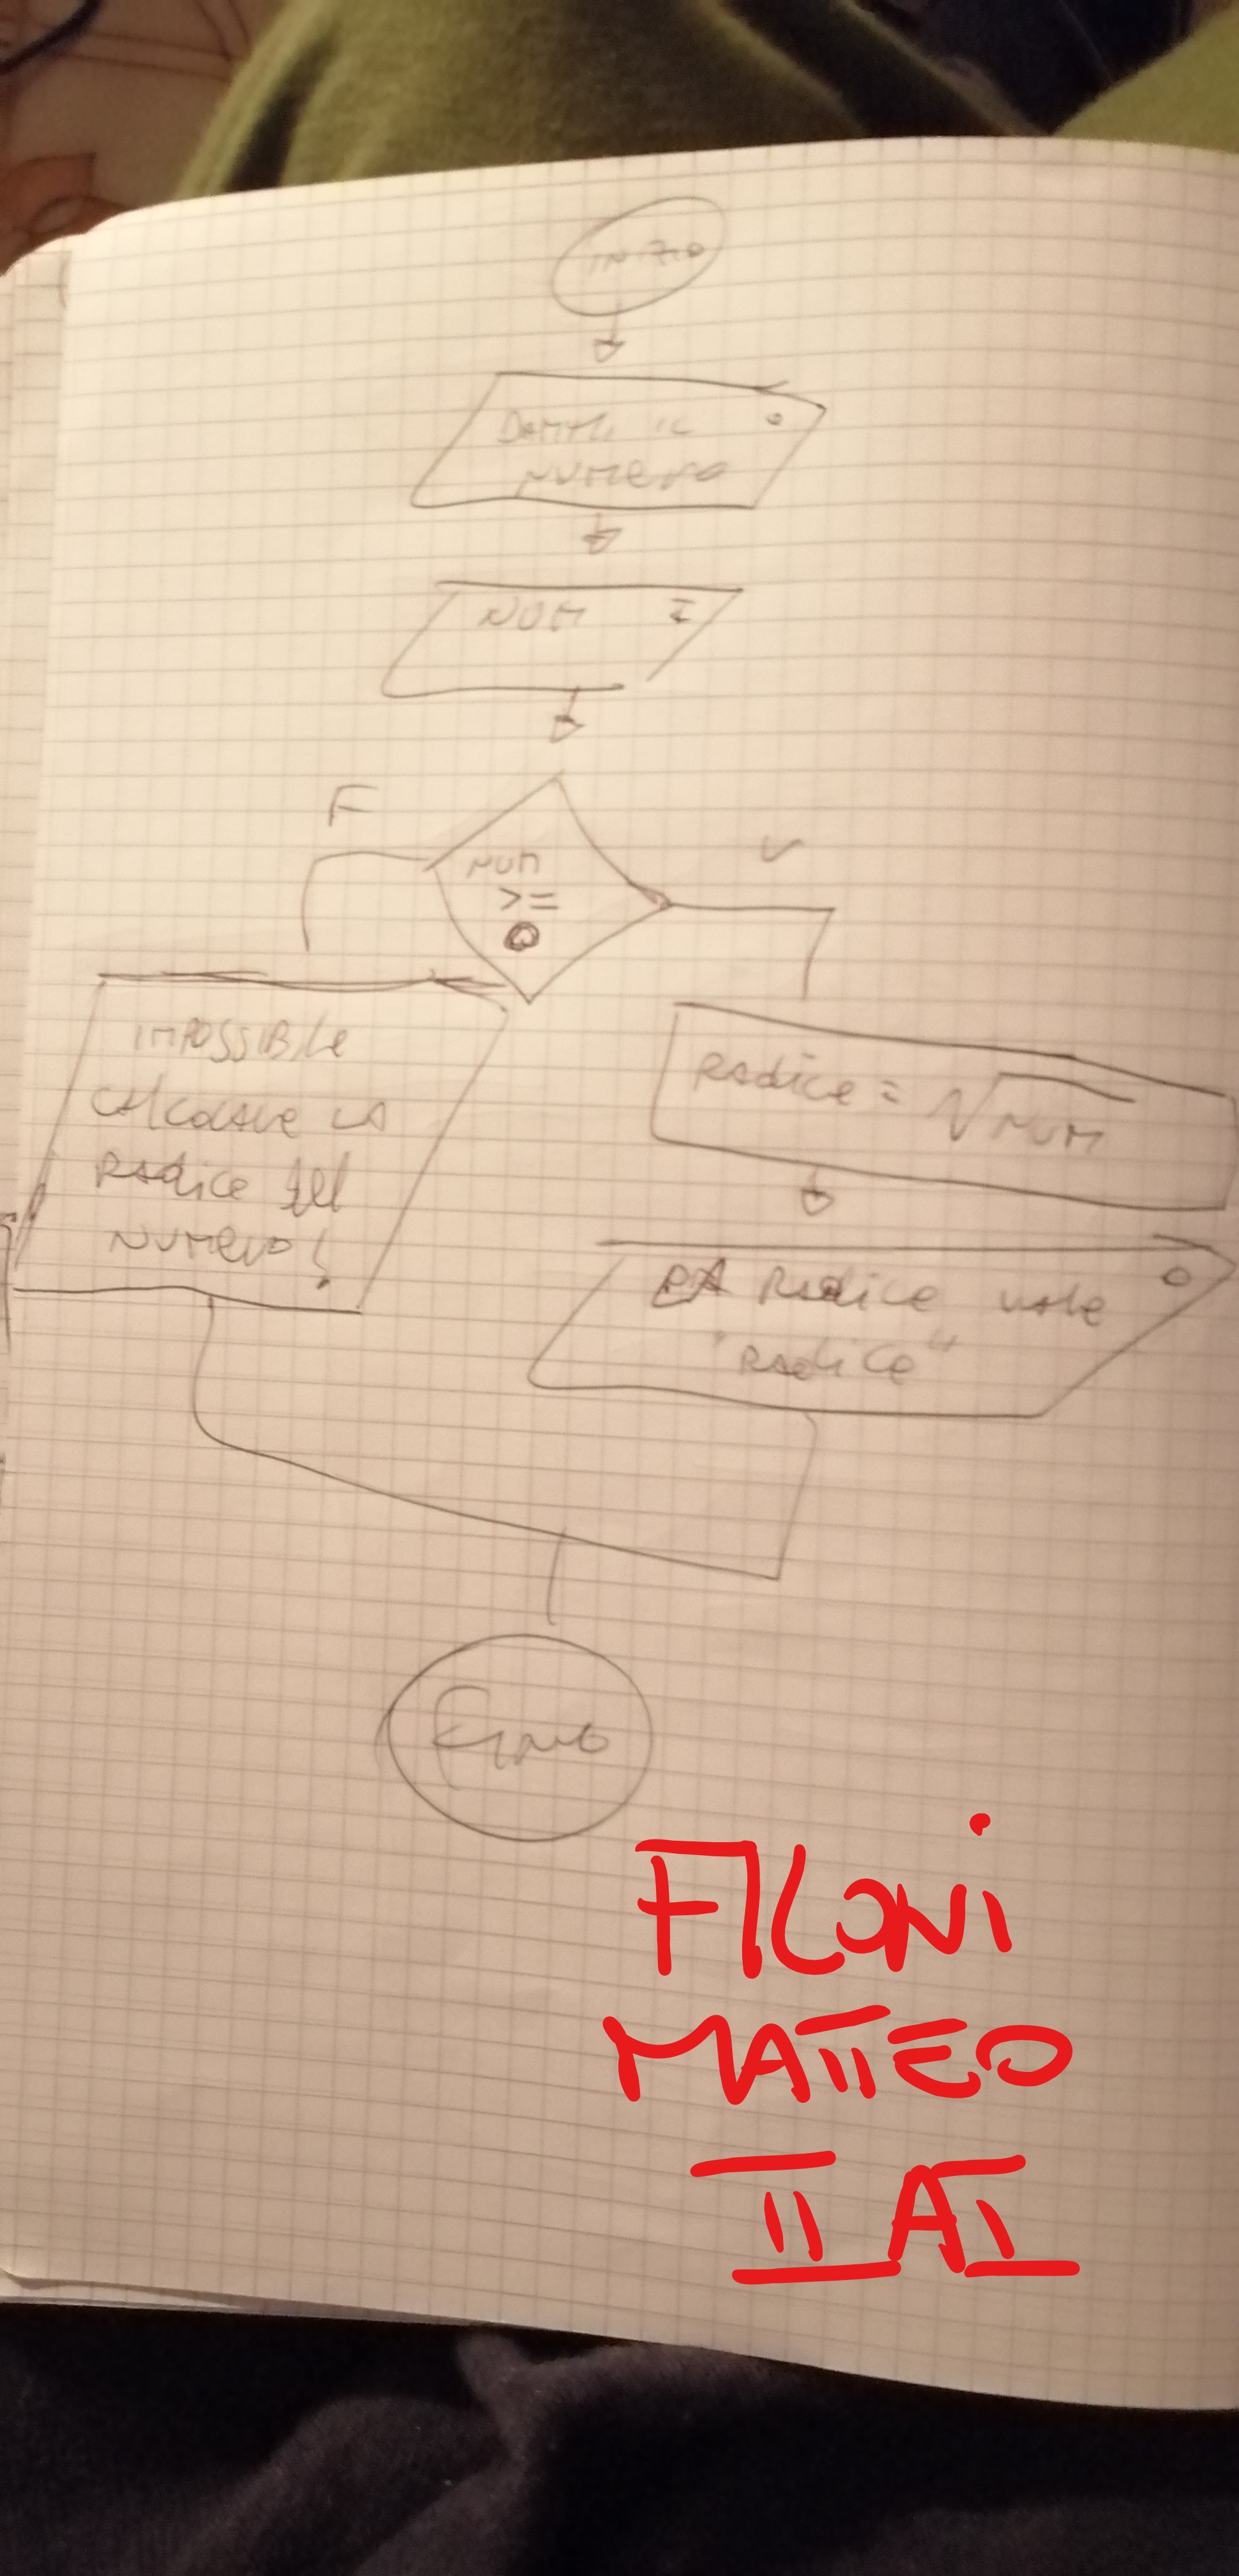 INIZIO
DAMMI IL O
NUMERO
NUM I
F
V
NUM
>=
0
IMPOSSIBILE
CALCOLARE LA
RADICE del
NUMERO!
RADICE = √NUM
LA RADICE VALE O
"RADICE"
FINE
FILONI
MATTEO
II AI